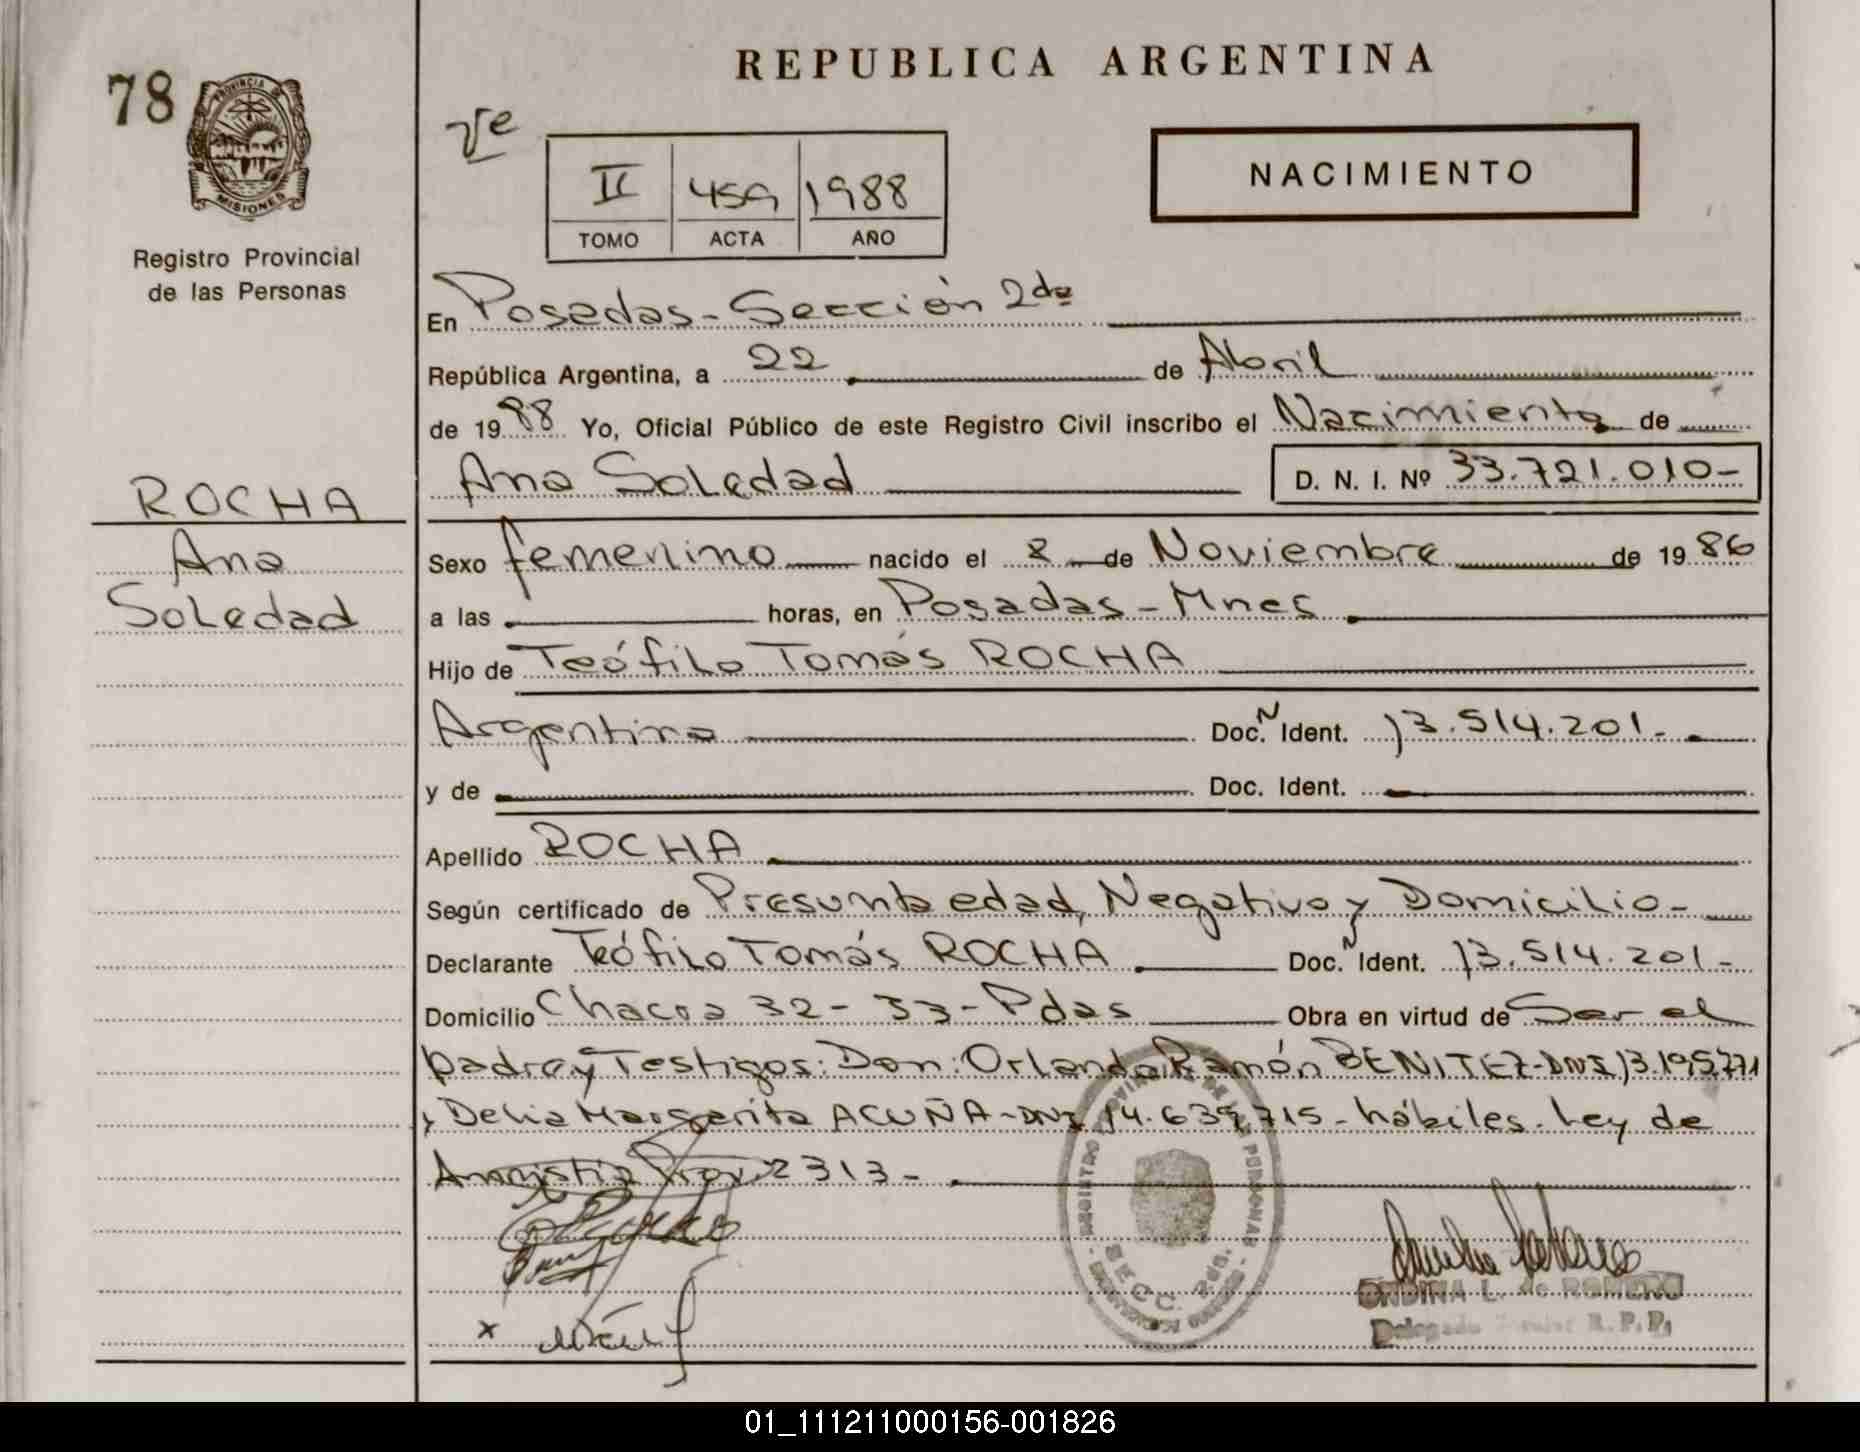 REPUBLICA ARGENTINA
78
PROVINCIA DE
MISIONES
Registro Provincial
de las Personas
NACIMIENTO
II 459 1988
TOMO ACTA AÑO
En Posadas - Sección 2da
República Argentina, a 22 de Abril
de 1988 Yo, Oficial Público de este Registro Civil inscribo el Nacimiento de
Ana Soledad D. N. I. Nº 33.721.010-
ROCHA
Ana
Soledad
Sexo femenino nacido el 8 de Noviembre de 1986
a las horas, en Posadas - Mnes
Hijo de Teófilo Tomás ROCHA
Argentina Doc. N Ident. 13.514.201.-
y de Doc. Ident.
Apellido ROCHA
Según certificado de Presunta edad, Negativo y Domicilio -
Declarante Teófilo Tomás ROCHA Doc. N Ident. 13.514.201-
Domicilio Chacra 32 - 33 - Pdas Obra en virtud de Ser el
padre y Testigos: Don: Orlando Ramón BENITEZ - DNI 13.195.771
y Delia Margarita ACUÑA - DNI 14.639.715 - hábiles. Ley de
Amnistia Prov. 2313 -
SECC. 2da.
ONDINA L. de ROMERO
R. P. P.
x
01_111211000156-001826